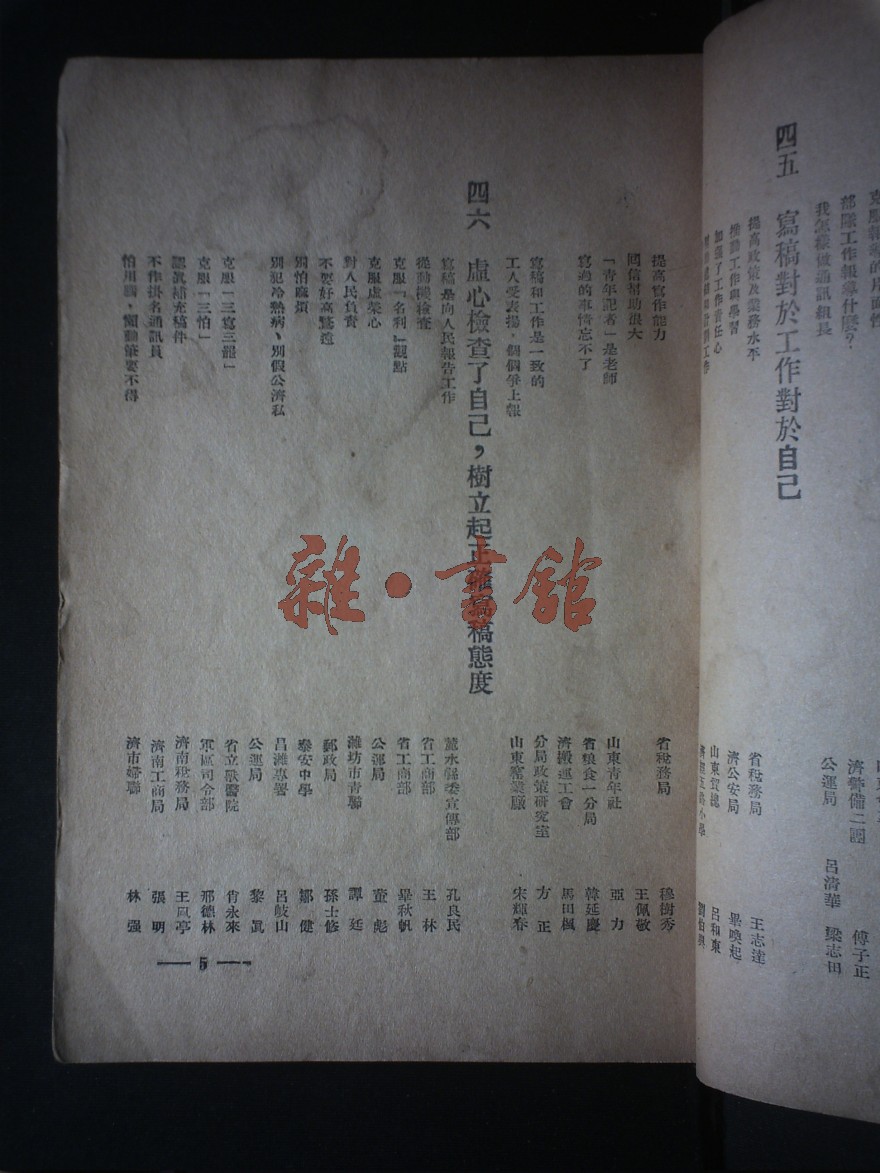 部隊工作報導什麼？ 濟警備二團 傅子正
我怎樣做通訊組長 公運局 呂濟華 梁志田
四五 寫稿對於工作對於自己
提高政策及業務水平 省稅務局 王志達
推動工作與學習 濟公安局 畢喚起
加強了工作責任心 山東貿總 呂和東
提高寫作能力 省稅務局 穆樹秀
回信幫助很大 王佩敬
「青年記者」是老師 山東青年社 亞力
寫過的事情忘不了 省粮食一分局 韓延慶
濟搬運工會 馬田楓
寫稿和工作是一致的 分局政策研究室 方正
工人受表揚，個個爭上報 山東窰業廠 宋輝春
四六 虛心檢查了自己，樹立起正確寫稿態度
寫稿是向人民報告工作 水縣委宣傳部 孔良民
從動機檢查 省工商部 王林
克服「名利」觀點 省工商部 畢秋帆
克服虛榮心 公運局 董彪
對人民負責 濰坊市青聯 譚廷
不要好高騖遠 郵政局 孫士修
別怕麻煩 泰安中學 鄒健
別犯冷熱病、別假公濟私 昌濰專署 呂岐山
公運局 黎眞
克服「三寫三罷」 省立獸醫院 肖永來
克服「三怕」 軍區司令部 邢德林
認眞補充稿件 濟南稅務局 王鳳亭
不作掛名通訊員 濟南工商局 張明
怕用腦，懶動筆要不得 濟市婦聯 林强
— 5 —
雜·書館